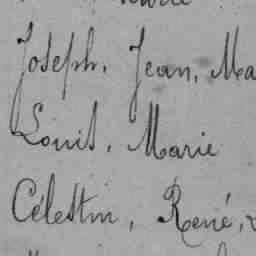 Joseph, Jean, Ma
Louis, Marie
Célestin, René,